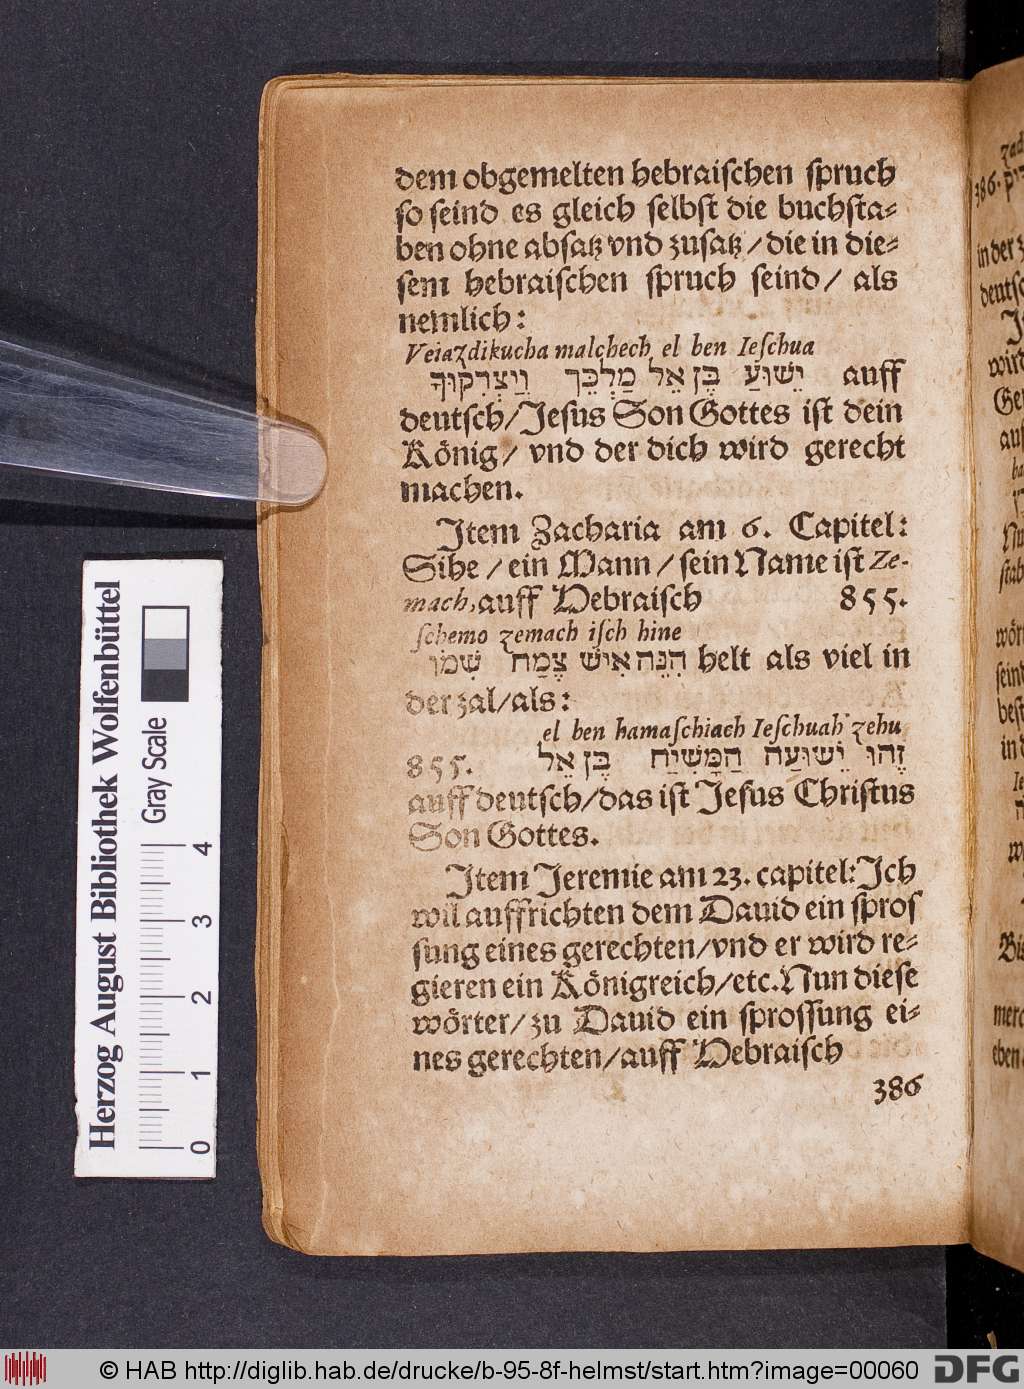 dem obgemelten hebraiſchen ſpruch
ſo ſeind es gleich ſelbſt die buchſta⸗
ben ohne abſatz vnd zuſatz / die in die⸗
ſem hebraiſchen ſpruch ſeind / als
nemlich:
Veiazdikucha malchech el ben Ieſchua
יֵשׁוּעַ בֶּן אֵל מַלְכֵּךְ וְיַצְדִּקוּךָ auff
deutſch/Jeſus Son Gottes iſt dein
König / vnd der dich wird gerecht
machen.
Item Zacharia am 6. Capitel:
Sihe / ein Mann / ſein Name iſt Ze-
mach, auff Hebraiſch 855.
ſchemo zemach iſch hine
הִנֵּה אִישׁ צֶמַח שְׁמוֹ helt als viel in
der zal/als:
el ben hamaſchiach Ieſchuah zehu
זֶהוּ יֵשׁוּעַה הַמָּשִׁיַח בֶּן אֵל 855.
auff deutſch/das iſt Jeſus Chriſtus
Son Gottes.
Item Jeremie am 23. capitel: Ich
wil auffrichten dem Dauid ein ſproſ
ſung eines gerechten/vnd er wird re⸗
gieren ein Königreich/etc. Nun dieſe
wörter/ zu Dauid ein ſproſſung ei⸗
nes gerechten/auff Hebraiſch
386
386.
in der
deutſ
wird
auf
wör
ſeind
beſt
in
Bis
merc
eben
Herzog August Bibliothek Wolfenbüttel
Gray Scale
0 1 2 3 4
© HAB http://diglib.hab.de/drucke/b-95-8f-helmst/start.htm?image=00060
DFG